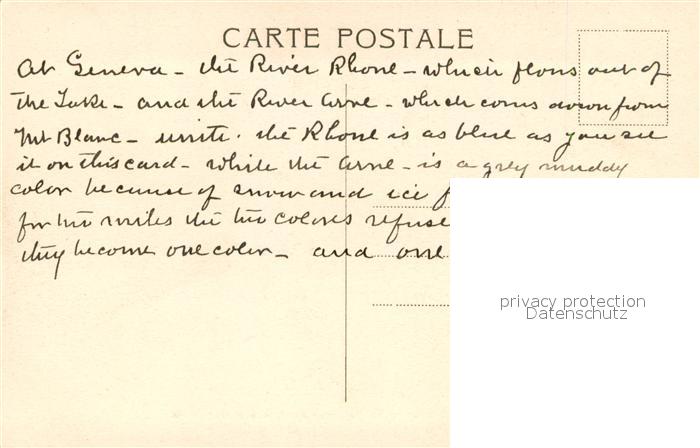 CARTE POSTALE
At Geneva - the River Rhone - which flows out of
the Lake - and the River Arve - which comes down from
Mt Blanc - unite. the Rhone is as blue as you see
it on this card - while the Arve - is a grey muddy
color because of snow and ice
for two miles the two colores refuse
they become one color - and one
privacy protection
Datenschutz